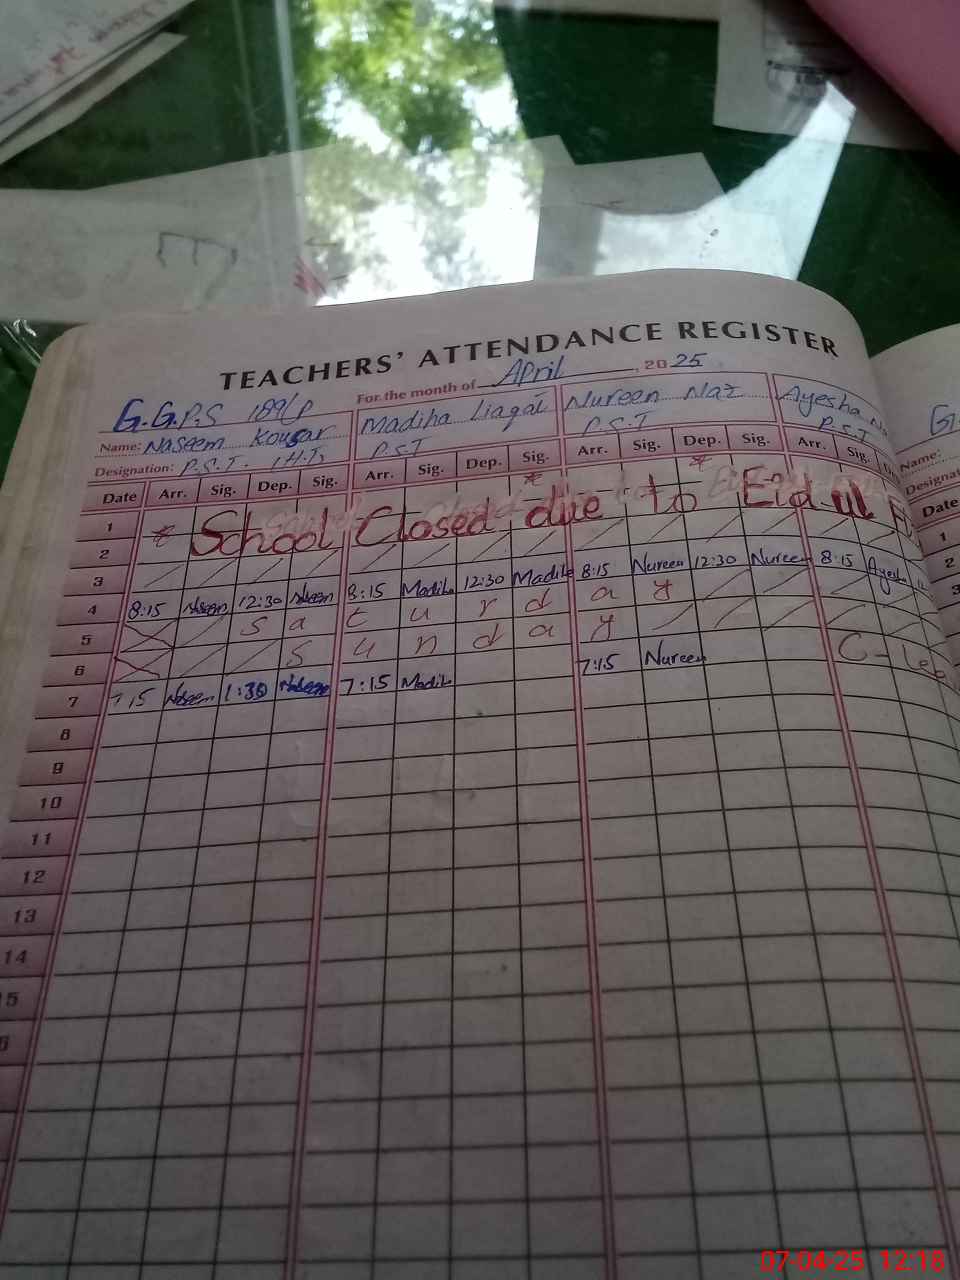 TEACHERS' ATTENDANCE REGISTER
For the month of April, 2025
G.G.P.S 189/P
Name: Naseem Kousar Madiha Liaqat Nureen Naz Ayesha
Designation: P.S.T. (H.T) P.S.T P.S.T P.S.T
Date Arr. Sig. Dep. Sig. Arr. Sig. Dep. Sig. Arr. Sig. Dep. Sig. Arr. Sig.
1 School Closed due to Eid ul
2
3
4 8:15 Naseem 12:30 Naseem 8:15 Madiha 12:30 Madiha 8:15 Nureen 12:30 Nureen 8:15 Ayesh
5 S a t u r d a y
6 S u n d a y
7 7:15 Naseem 1:30 Naseem 7:15 Madiha 7:15 Nureen C-Lea
8
9
10
11
12
13
14
G.
Name:
Designat
Date
1
2
3
07-04-25 12:18